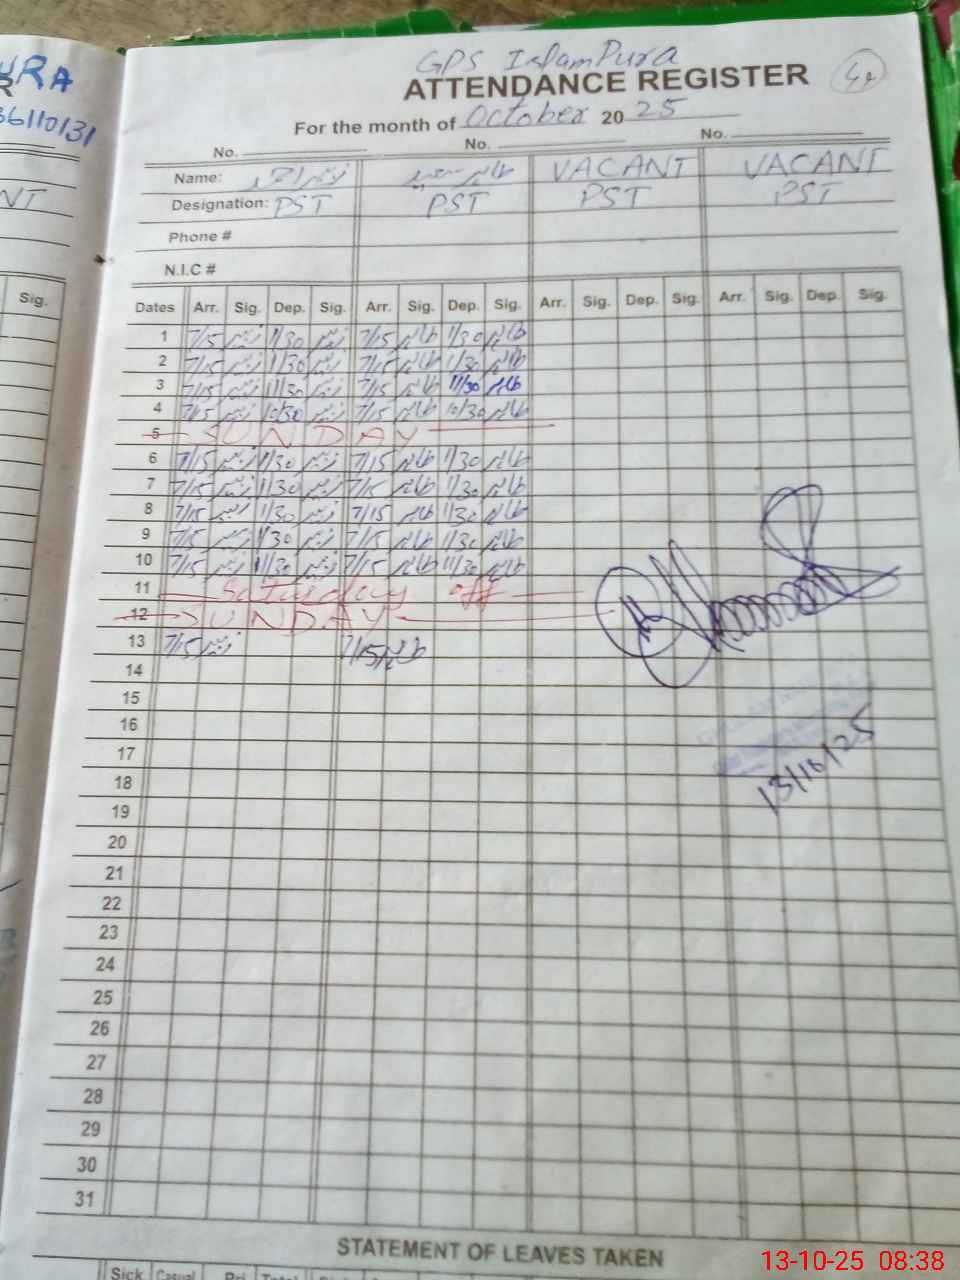 URA
R
36110131
NT
Sig.
GPS IslamPura
ATTENDANCE REGISTER
For the month of October 20 25
No. No. No.
Name: VACANT VACANT
Designation: PST PST PST PST
Phone #
N.I.C #
Dates Arr. Sig. Dep. Sig. Arr. Sig. Dep. Sig. Arr. Sig. Dep. Sig. Arr. Sig. Dep. Sig.
1 7/15 1/30 7/15 طاہر 1/30 طاہر
2 7/15 1/30 7/15 طاہر 1/30 طاہر
3 7/15 11/30 7/15 طاہر 11/30 طاہر
4 7/15 10/30 7/15 طاہر 10/30 طاہر
5 SUNDAY
6 7/15 1/30 7/15 طاہر 1/30 طاہر
7 7/15 1/30 7/15 طاہر 1/30 طاہر
8 7/15 1/30 7/15 طاہر 1/30 طاہر
9 7/15 1/30 7/15 طاہر 1/30 طاہر
10 7/15 11/30 7/15 طاہر 11/30 طاہر
11 Saturday off
12 SUNDAY
13 7/15 7/15 طاہر
14
15
16
17
18
19
20
21
22
23
24
25
26
27
28
29
30
31
13/10/25
STATEMENT OF LEAVES TAKEN
Sick Casual Pri Total
13-10-25 08:38